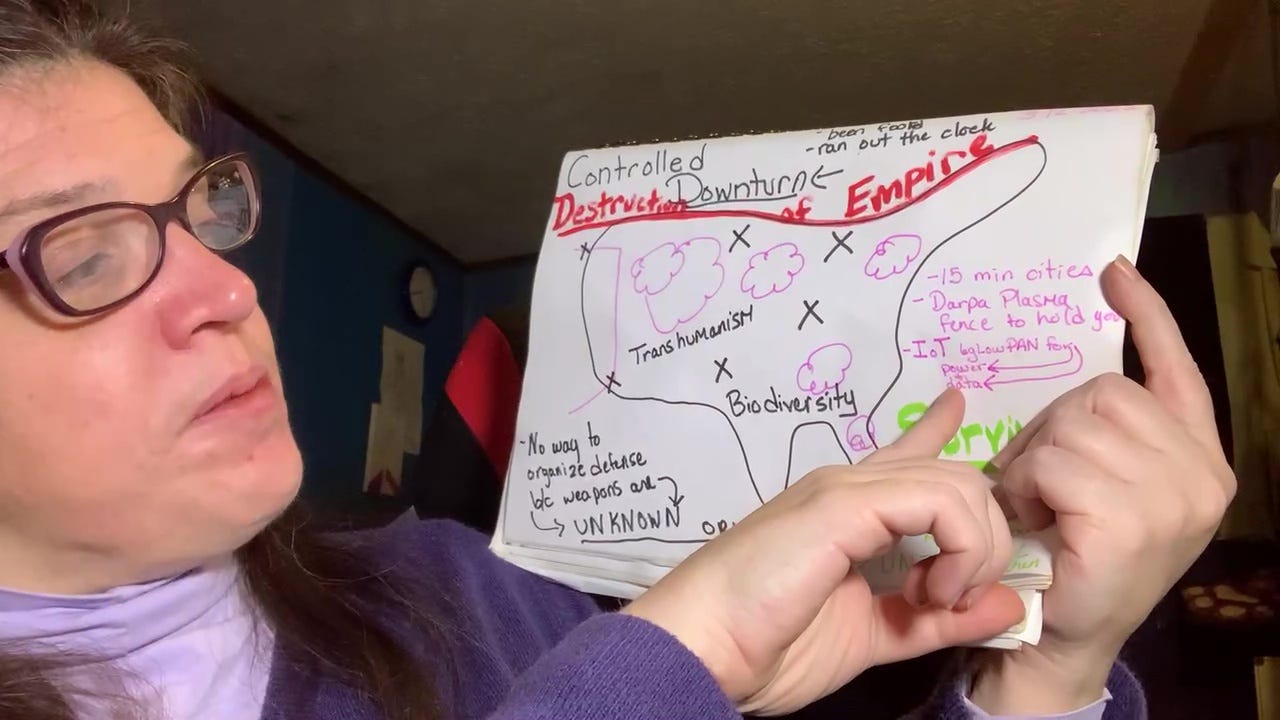 - been
- ran out the clock
Controlled
Downturn ←
Destruction of Empire
Transhumanism
Biodiversity
- 15 min cities
- Darpa Plasma
fence to hold you
- IoT 6gLowPAN for
power
data
- No way to
organize defense
b/c weapons are
UNKNOWN